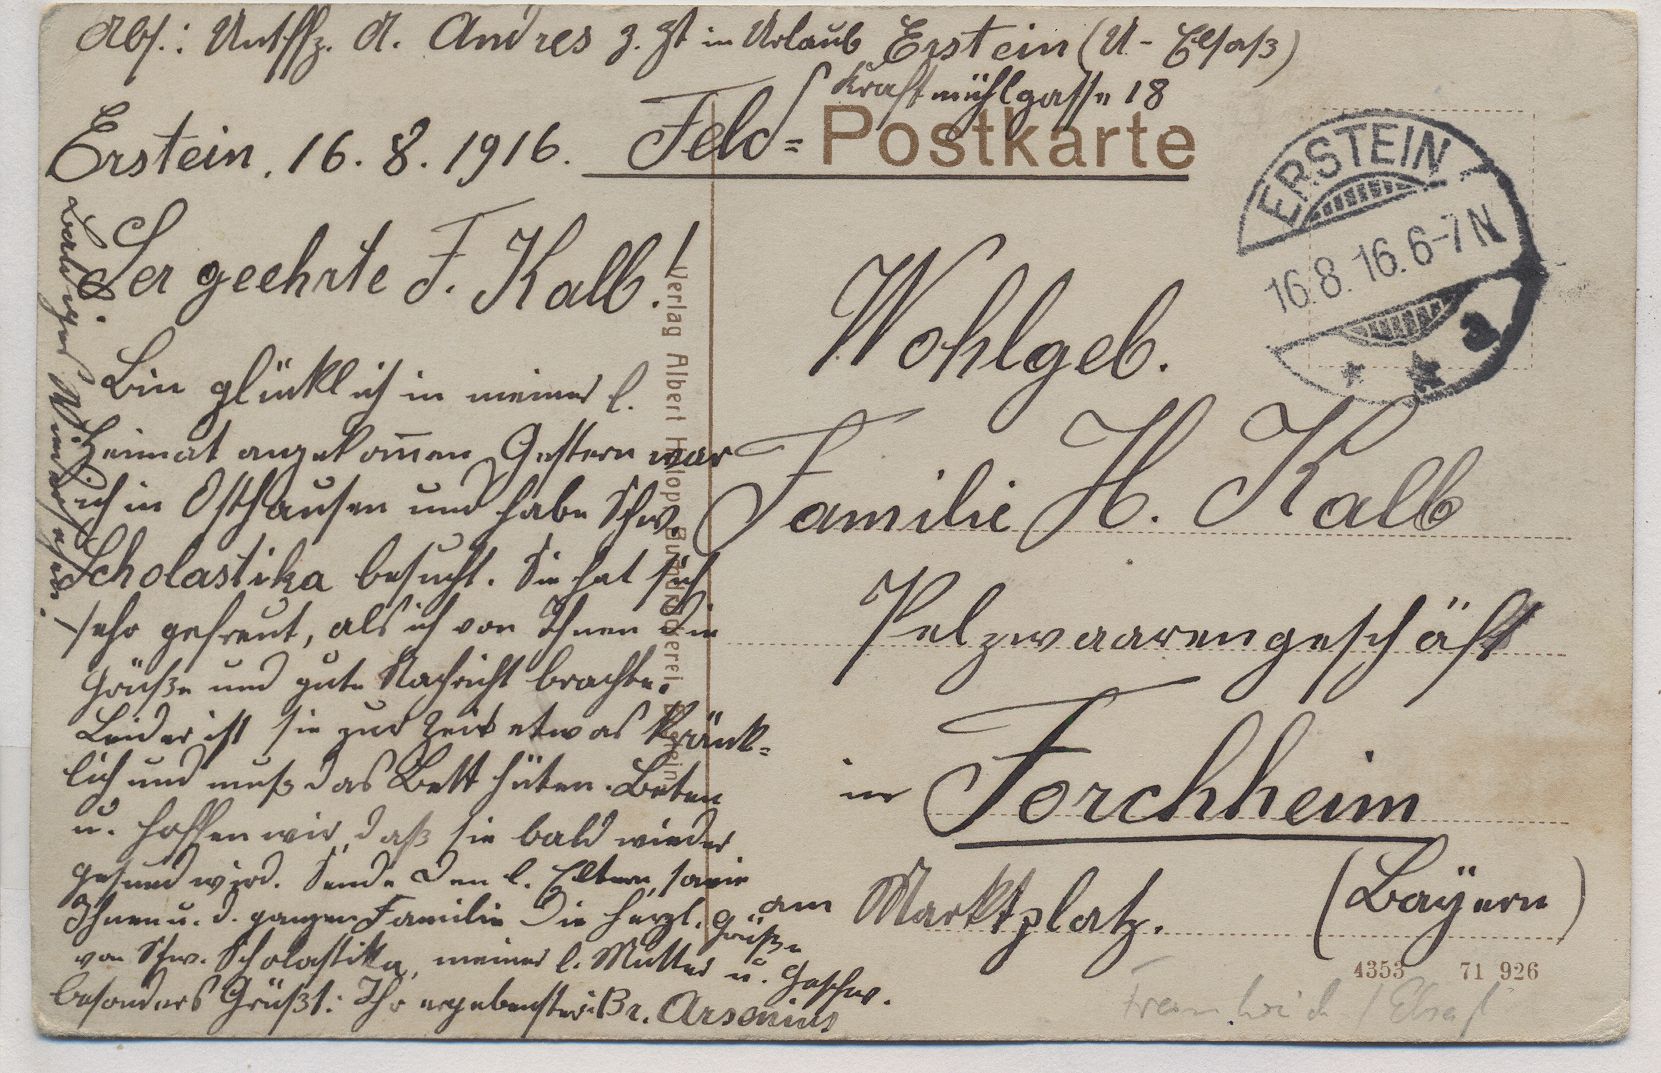 Abs.: Untffz. A. Andres z. Zt in Urlaub Erstein (U-Elsaß)
Kraftmühlgasse 18
Erstein, 16. 8. 1916.
Feld= Postkarte
ERSTEIN
16.8.16.6-7N
* * a
Ser geehrte F. Kalb!
Bin glücklich in meiner l.
Heimat angekom̅en. Gestern war
ich in Osthausen und habe Schw.
Scholastika besucht. Sie hat sich
sehr gefreut, als ich von Ihnen die
Grüße und gute Nachricht brachte.
Leider ist sie zur Zeit etwas kränk=
lich und muß das Bett hüten. Beten
u. hoffen wir, daß sie bald wieder
gesund wird. Sende den l. Eltern, sowie
Ihnen u. d. ganzen Familie die herzl. Grüße
von Schw. Scholastika, meiner l. Mutter u. Geschw.
besonders Grüßt: Ihr ergebenster Br. Arsenius
Baldiges Wiedersehen!
Verlag Albert Buchdruckerei, Erstein
Wohlgeb.
Familie H. Kalb
Pelzwaarengeschäft
in Forchheim
am Marktplatz. (Bayern)
4353 71 926